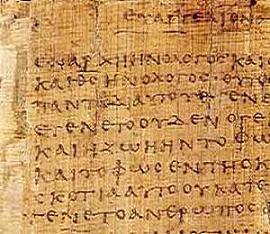 ΕΥΑΓΓΕΛΙΟΝ
ΕΝΑΡΧΗΗΝΟΛΟΓΟϹΚΑΙΟ
ΚΑΙΘϹΗΝΟΛΟΓΟϹΟΥΤΟ
ΠΑΝΤΑΔΙΑΥΤΟΥΕΓΕΝΕ
ΕΓΕΝΕΤΟΟΥΔΕΝΟΓΕ
ΚΑΙΗΖΩΗΗΝΤΟΦΩ
ΚΑΙΤΟΦΩϹΕΝΤΗϹΚΟ
ϹΚΟΤΙΑΑΥΤΟΟΥΚΑΤΕ
ΓΕΝΕΤΟΑΝΘΡΩΠΟϹ